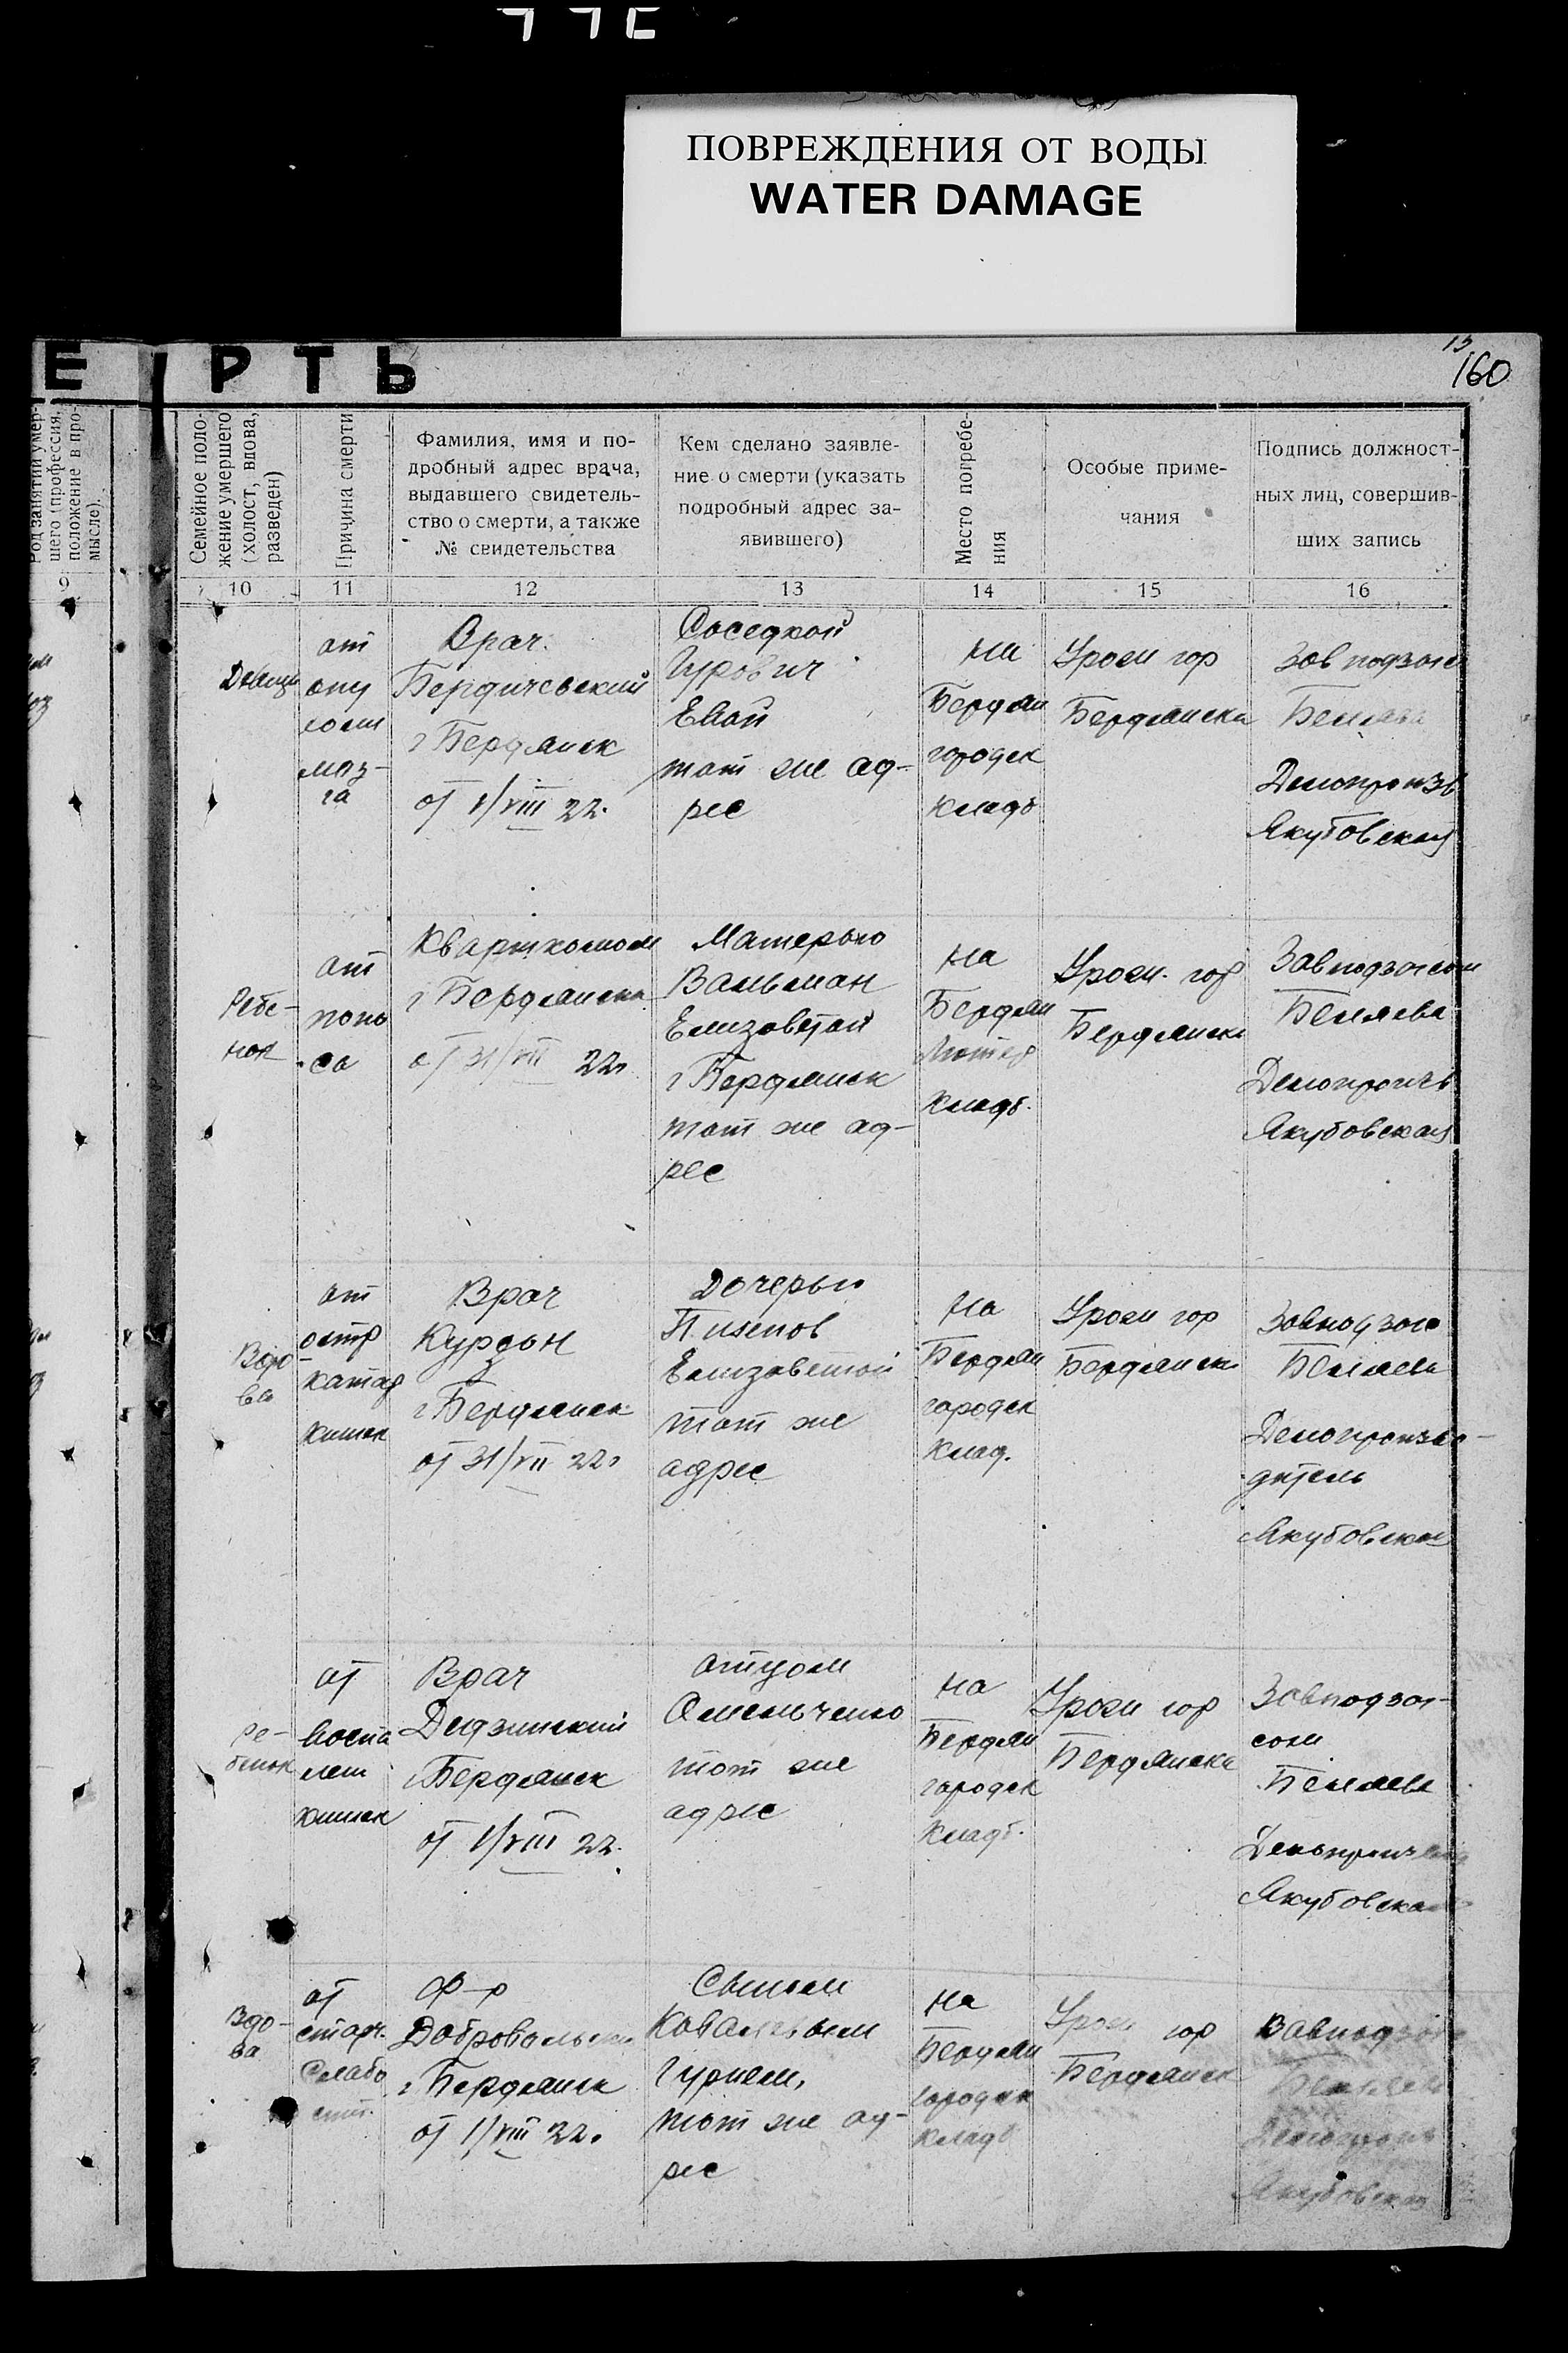 ПОВРЕЖДЕНИЯ ОТ ВОДЫ
WATER DAMAGE
Е РТЬ
160
Род занятий умер-
шего (профессия,
положение в про-
мысле).
9
Семейное поло-
жение умершего
(холост, вдова,
разведен)
10
Причина смерти
11
Фамилия, имя и по-
дробный адрес врача,
выдавшего свидетель-
ство о смерти, а также
№ свидетельства
12
Кем сделано заявле-
ние о смерти (указать
подробный адрес за-
явившего)
13
Место погребе-
ния
14
Особые приме-
чания
15
Подпись должност-
ных лиц, совершив-
ших запись
16
от
опу
холи
моз-
га
Врач
Бердичевский
г Бердянск
от 1/VIII 22.
Соседкой
Гурович
Евой
тот же ад-
рес
на
Бердян
городск
кладб
Урож гор
Бердянска
Зав подзаг
Беляева
Делопроизв
Якубовская
Ребе-
нок
от
поно
са
Квартхомом
г Бердянска
от 31/VII 22г
Матерью
Вальман
Елизаветой
г Бердянск
тот же ад-
рес
на
Бердян
Лютер
кладб.
Урож. гор
Бердянска
Завподзагсом
Беляева
Делопроизв
Якубовская
Вдо-
ва
от
остр
катар
кишек
Врач
г Бердянск
от 31/VII 22г
Дочерью
Елизаветой
тот же
адрес
на
Бердян
городск
клад.
Урож гор
Бердянска
Завподзаг
Беляева
Делопроизво-
дитель
Якубовская
Ре-
бенок
от
воспа
лен
кишек
Врач
Дидзинский
г Бердянск
от 1/VIII 22.
отцом
Омельченко
тот же
адрес
на
Бердян
городск
кладб.
Урож гор
Бердянска
Завподзаг-
сом
Беляева
Якубовская
Вдо-
ва
от
старч.
слабо
ст.
Ф-р
Добровольский
г Бердянск
от 1/VIII 22г
Сыном
Ковалевым
тот же ад-
рес
на
Бердян
городск
кладб
Урож гор
Бердянск
Завподзаг
Беляева
Делопроизв
Якубовская